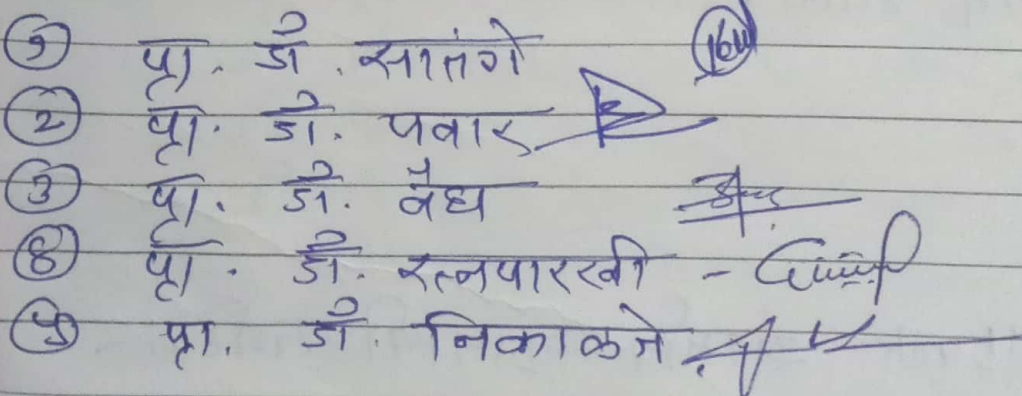 १ प्रा. डॉ. सातंगे
२ प्रा. डॉ. पवार
३ प्रा. डॉ. वैद्य
४ प्रा. डॉ. रत्नपारखी -
५ प्रा. डॉ. निकाळजे